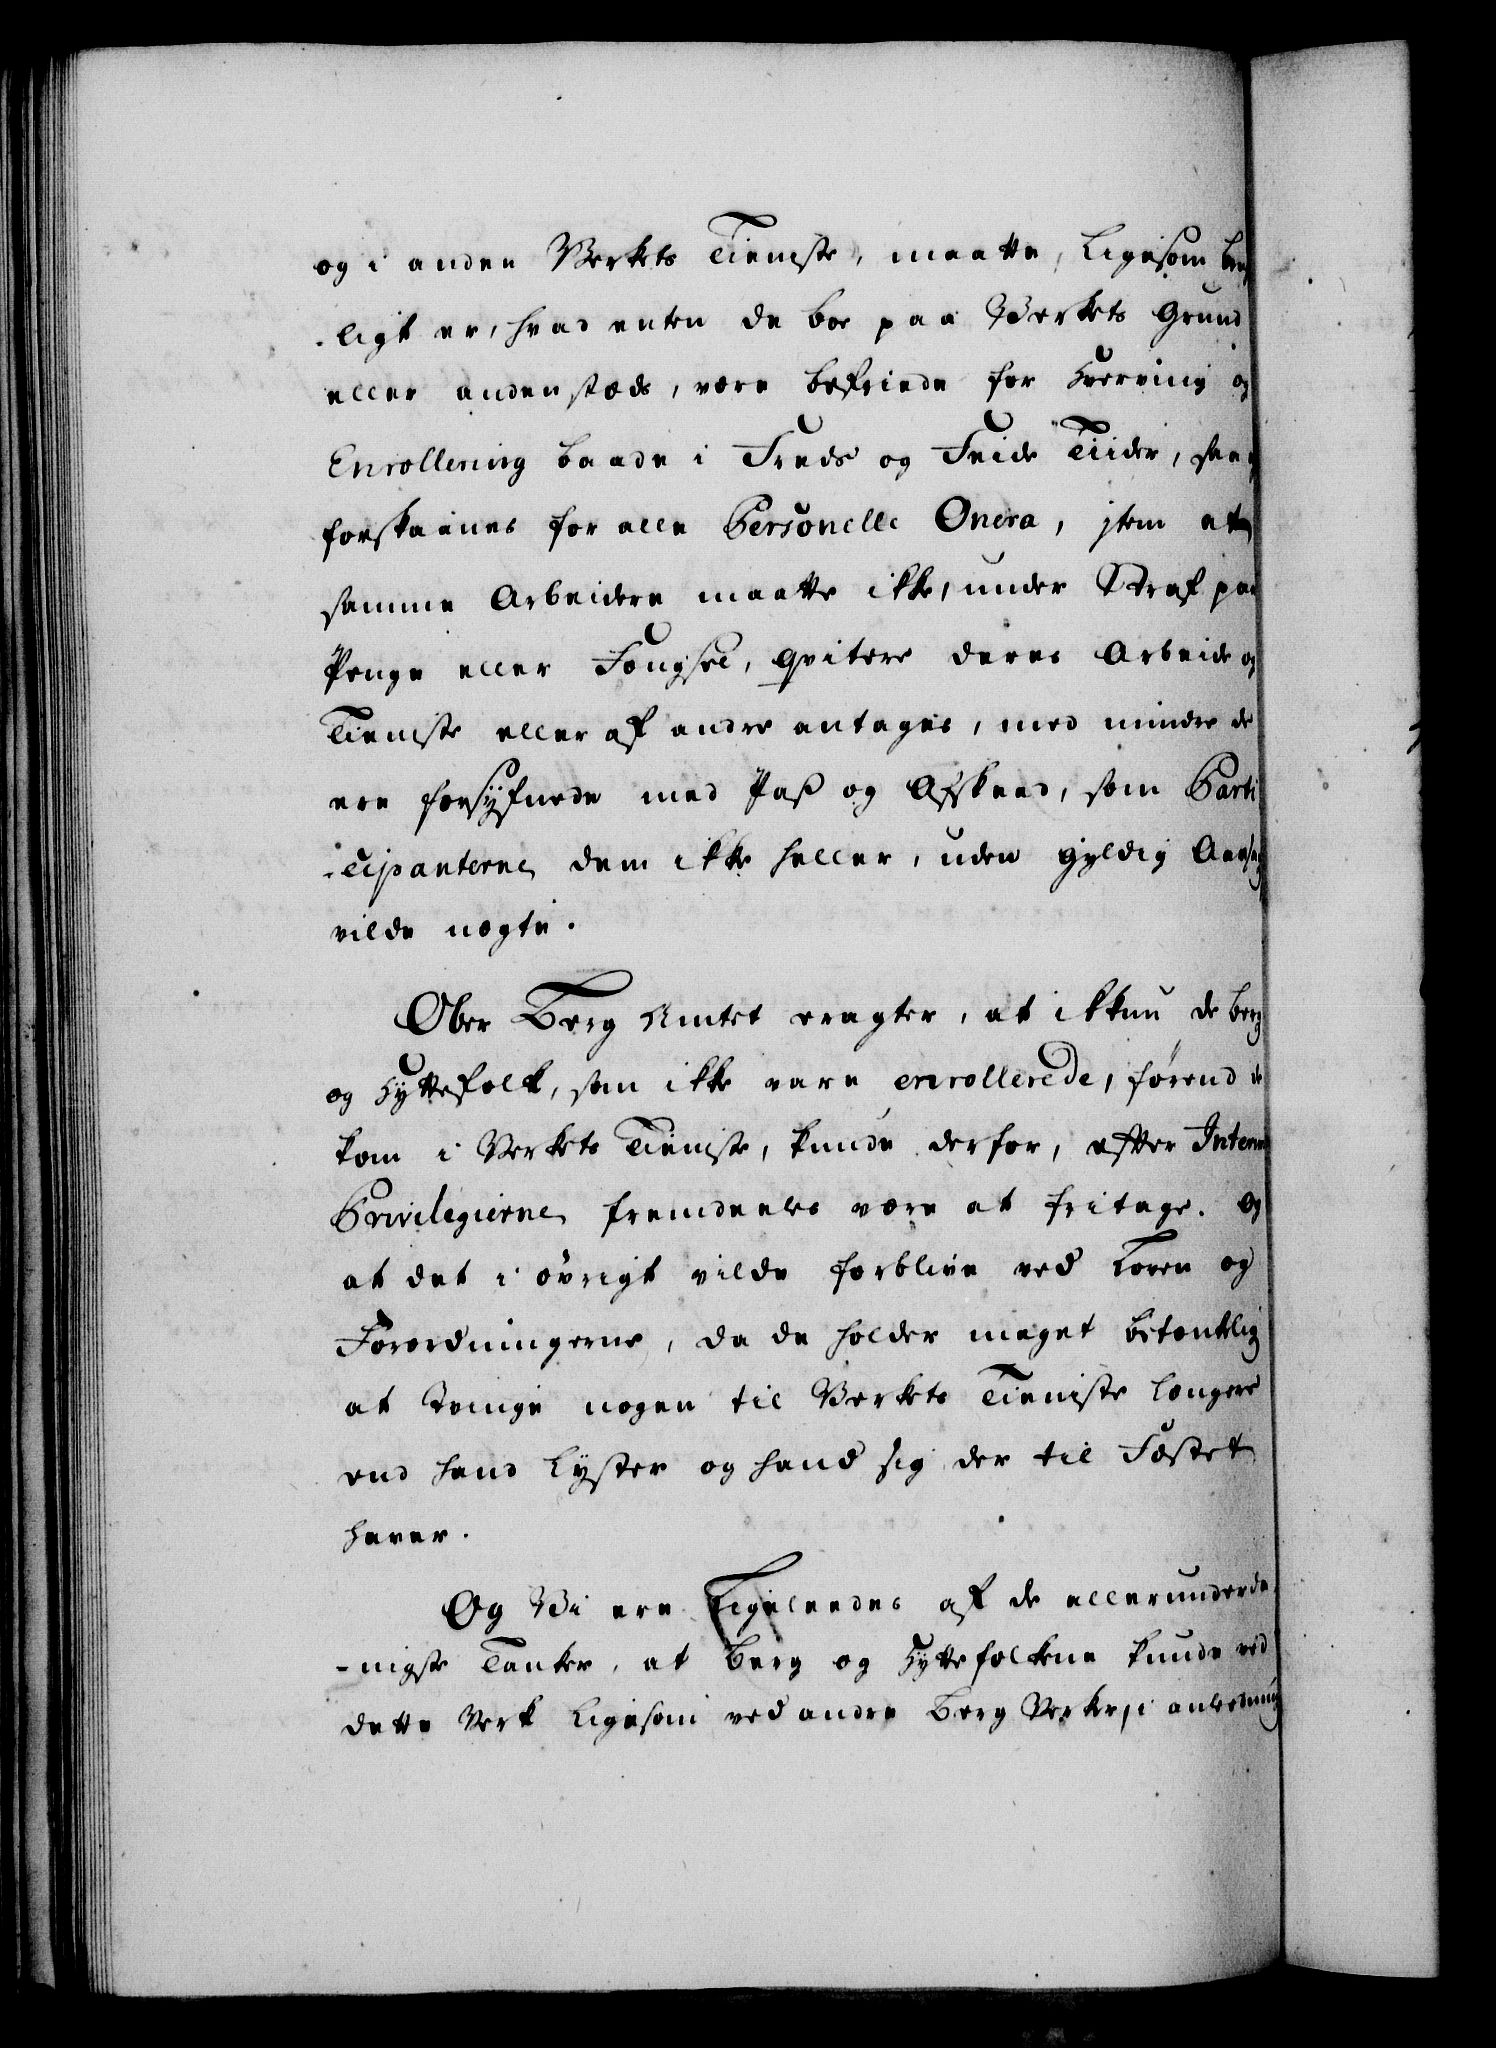 og i anden Verkets Tieniste, maatte, ligesom bru-
-ligt er, hvad enten de boe paa Verkets Grund
eller andenstæds, være befriede for Hverving og
Enrollering baade i Freds og Feide Tiider, samt
forskaanes for alle Personelle Onera, jtem at
samme Arbeidere maatte ikke, under Straf paa
Penge eller Fængsel, qvitere deres Arbeide og
Tieniste eller af andre antages, med mindre de
ere forsynede med Pass og Afskeed, som Parti-
-cipanterne dem ikke heller, uden gyldig Aarsag
vilde nægte.
Ober Berg Amtet eragter, at ikkun de berg
og Hyttefolk, som ikke vare enrollerede, førend de
kom i Verkets Tieniste, kunde derfor, efter Interims
Privilegierne fremdeeles være at fritage. Og
at det i øvrigt vilde forblive ved Loven og
Forordningerne, da de holder meget betænkelig
at tvinge nogen til Verkets Tieniste længere
end hand lyster og hand sig der til Fæstet
haver.
Og Vi ere Ligeledes af de allerunderda-
-nigste Tanker, at Berg og Hyttefolkene kunde ved
dette Verk ligesom ved andre Berg Verker, i anledning